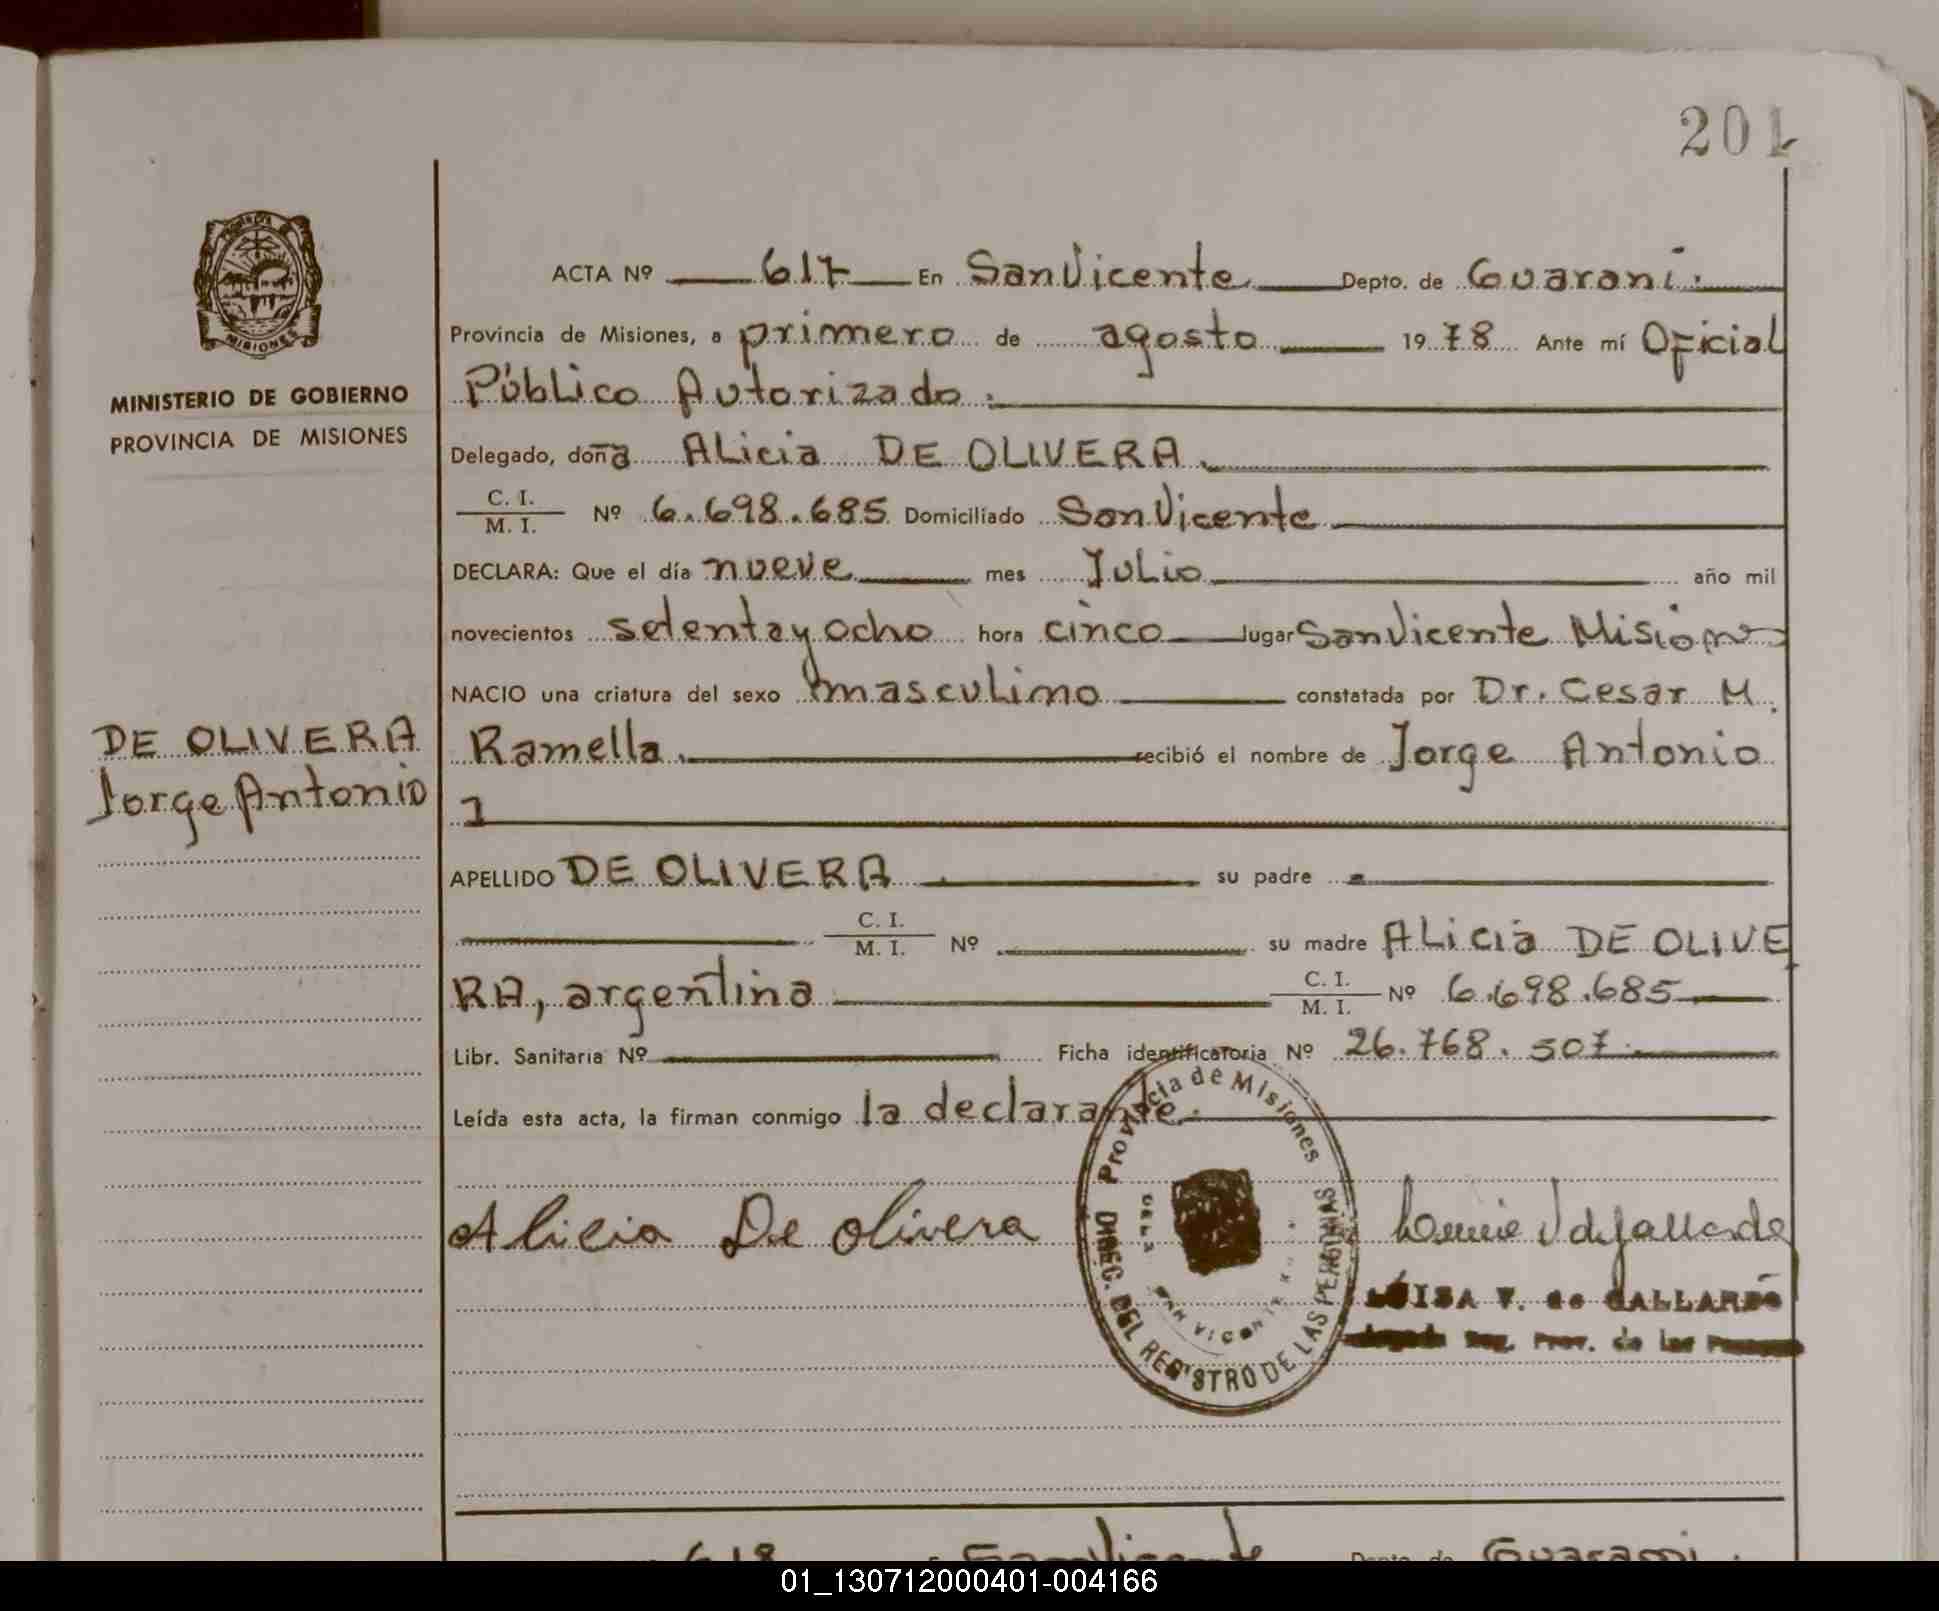 201
ACTA Nº 617 En San Vicente Depto. de Guaraní.
Provincia de Misiones, a primero de agosto 1978 Ante mí Oficial
Público Autorizado.
MINISTERIO DE GOBIERNO
PROVINCIA DE MISIONES
Delegado, doña Alicia DE OLIVERA.
C. I.
M. I. Nº 6.698.685 Domiciliado San Vicente
DECLARA: Que el día nueve mes Julio año mil
novecientos setenta y ocho hora cinco lugar San Vicente Misiones
NACIO una criatura del sexo masculino constatada por Dr. Cesar M.
DE OLIVERA
Jorge Antonio
Ramella. recibió el nombre de Jorge Antonio
APELLIDO DE OLIVERA su padre
C. I.
M. I. Nº su madre Alicia DE OLIVE
RA, argentina C. I.
M. I. Nº 6.698.685
Libr. Sanitaria Nº Ficha identificatoria Nº 26.768.507.
Leída esta acta, la firman conmigo la declarante.
Provincia de Misiones
DIREC. DEL REGISTRO DE LAS PERSONAS
SAN VICENTE
Alicia De olivera
LUISA V. de GALLARDO
Reg. Prov. de las Personas
618 San Vicente Depto. de Guaraní.
01_130712000401-004166